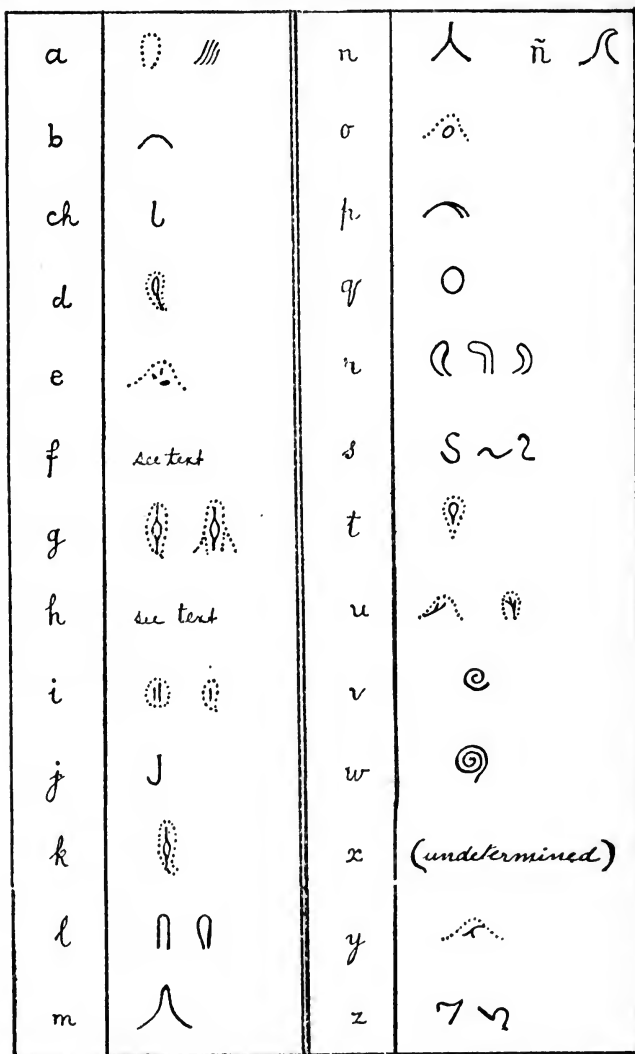 a
b
ch
d
e
f see text
g
h see text
i
j J
k
l
m
n ñ
o
p
q
r
s
t
u
v
w
x (undetermined)
y
z